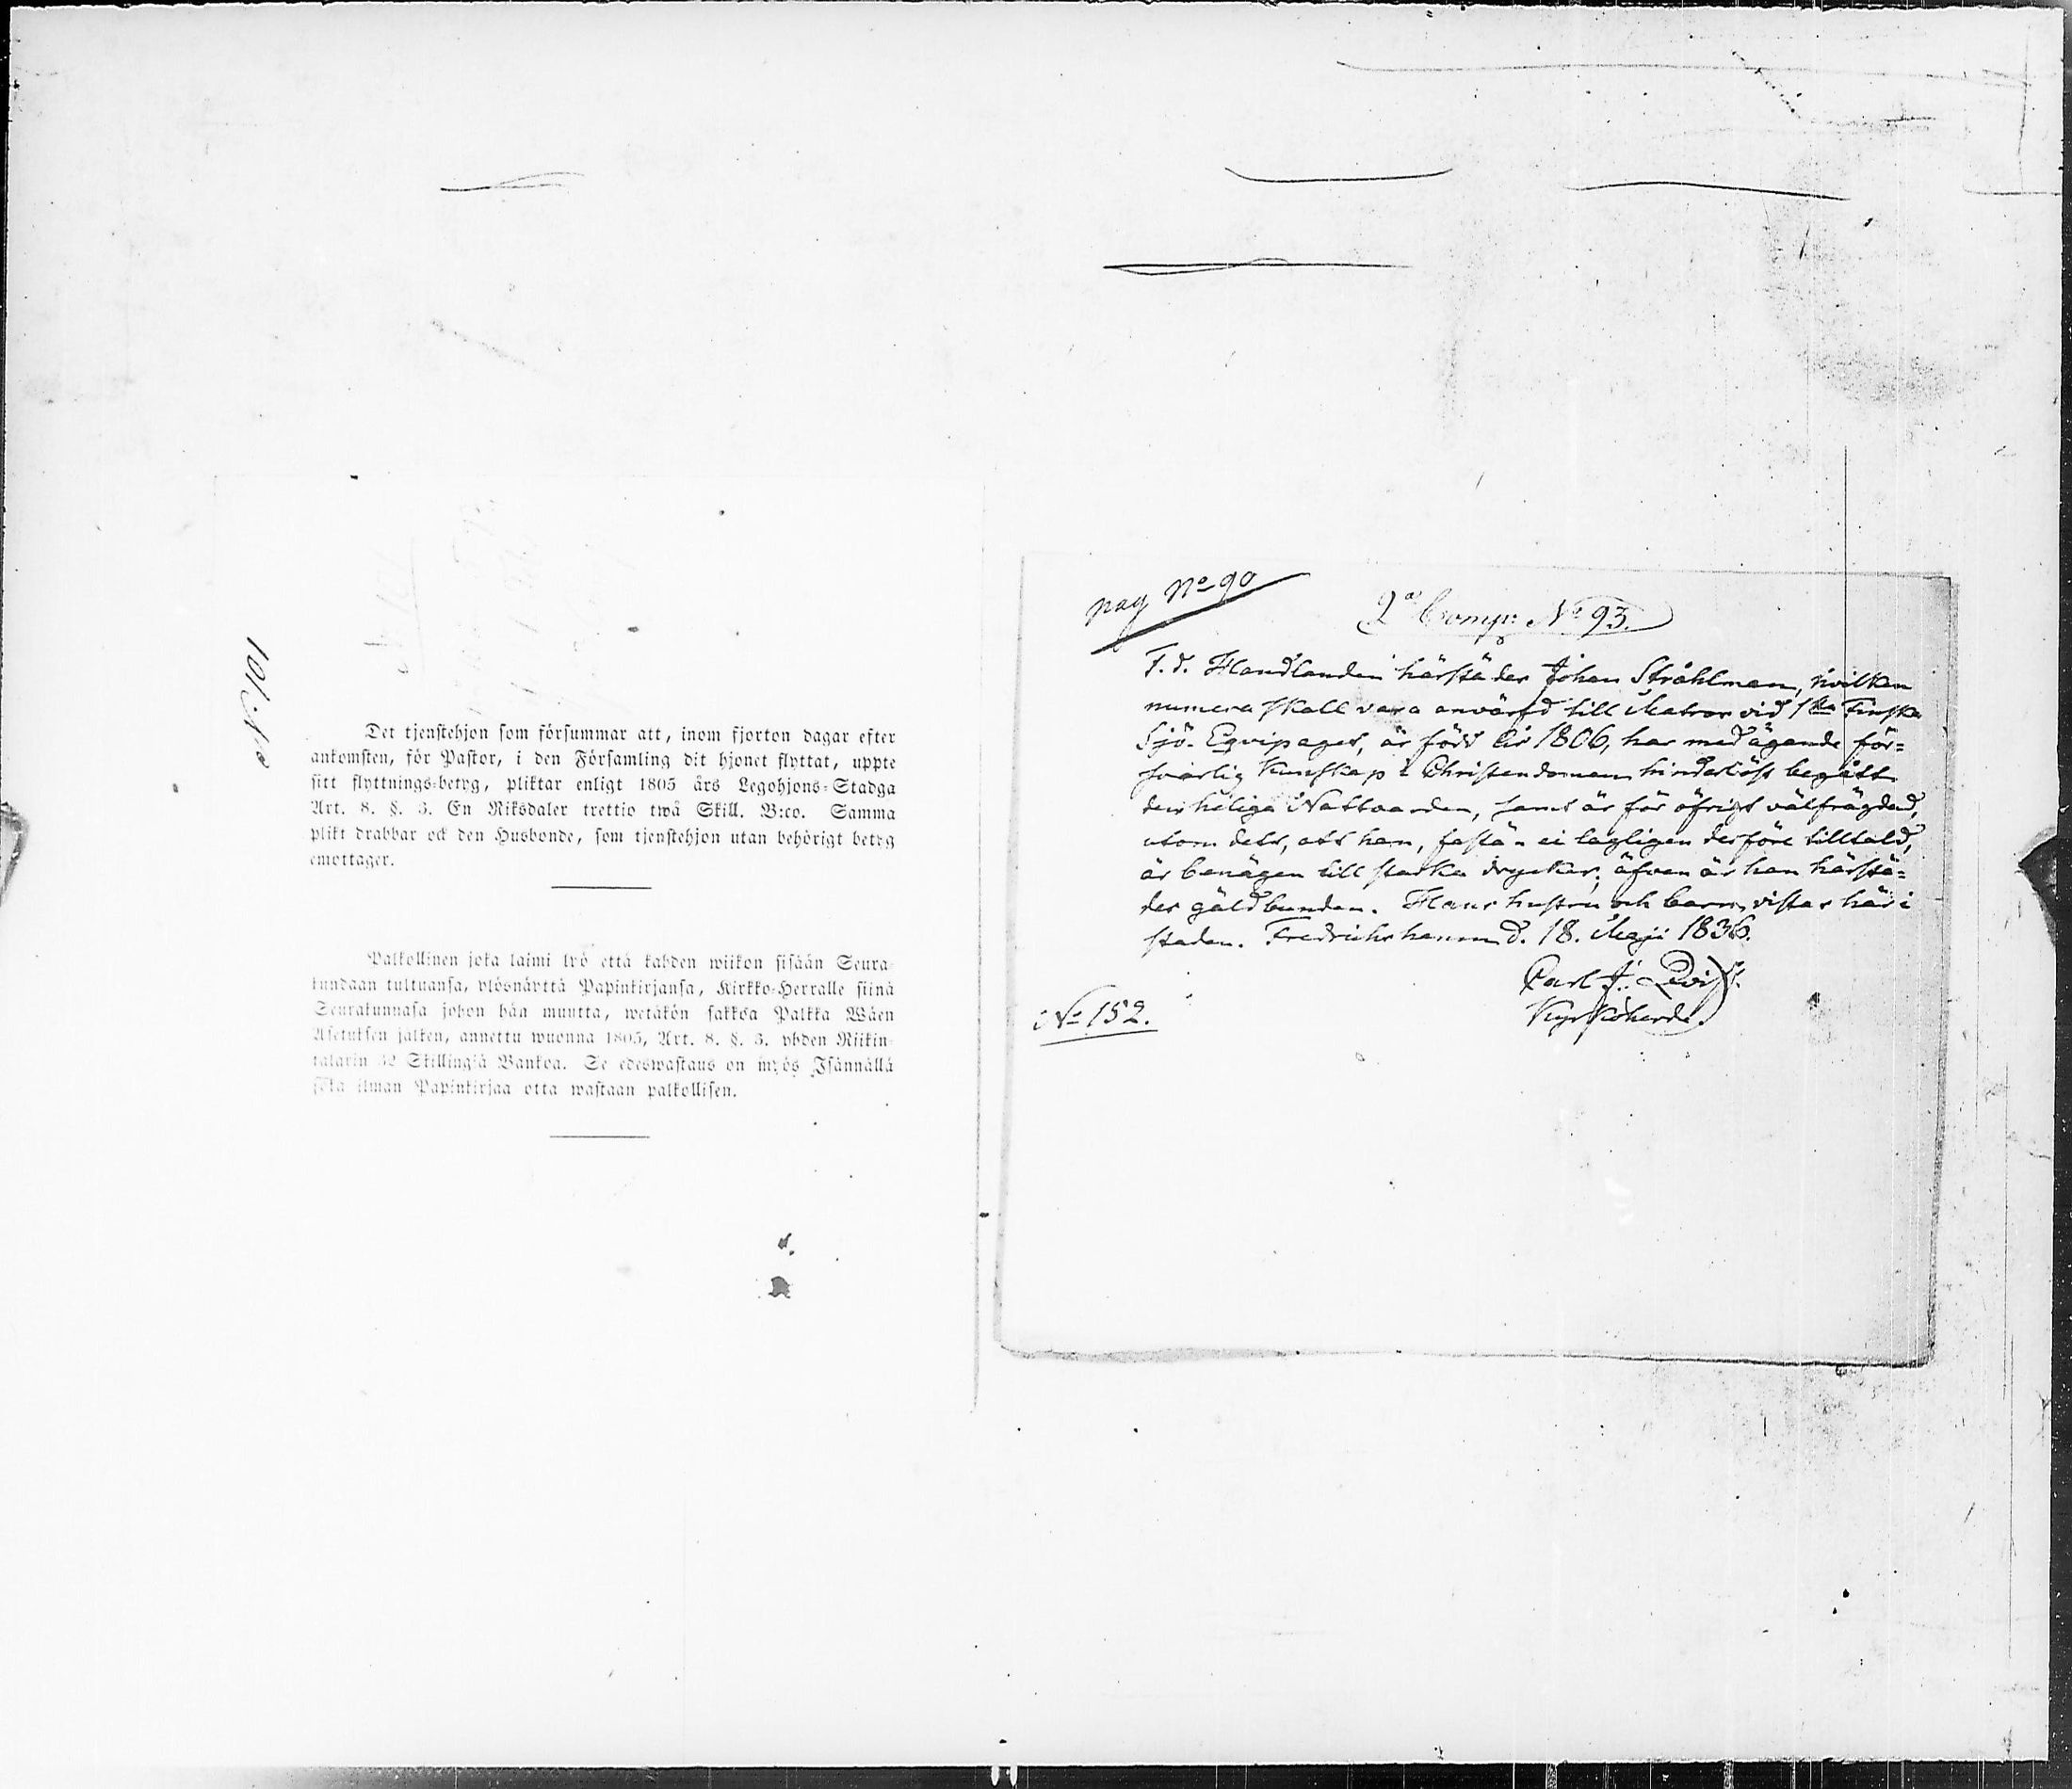 No 101.
Det tjenstehjon som försummar att, inom fjorton dagar efter
ankomsten, för Pastor, i den Församling dit hjonet flyttat, uppte
sitt flyttnings-betyg, pliktar enligt 1805 års Legohjons-Stadga
Art. 8. §. 3. En Riksdaler trettio twå Skill. B:co. Samma
plikt drabbar ock den Husbonde, som tjenstehjon utan behörigt betyg
emottager.
Palkollinen joka laimi lyö että kahden wiikon sisään Seura-
kundaan tultuansa, ylösnäyttä Papinkirjansa, Kirkko-Herralle siinä
Seurakunnasa johon hän muutta, wetäkön sakkoa Palkka Wäen
Asetuksen jälken, annettu wuonna 1805, Art. 8. §. 3. yhden Riikin-
talarin 32 Skillingiä Bankoa. Se edeswastaus on myös Isännällä
joka ilman Papinkirjaa otta wastaan palkollisen.
pag No 90
2a Comp: No 93.
F. d. Handlanden härstädes Johan Stråhlman, hvilken
numera skall vara anvärfd till Matros vid 1sta Finska
Sjö-Equipaget, är född År 1806, har med ägande för=
svarlig Kunskap i Christendomen hinderlöst begått
den heliga Nattvarden, samt är för öfrigt välfrägdad,
utom dett, att han, fastän ei lagligen derföre tilltald,
är benägen till starka drycker; äfven är han härstä=
des gäldbunden. Hans hustru och barn vistas här i
staden. Fredrichshamn d. 18. Maji 1836.
Carl J.
Kyrkoherde.
No 152.